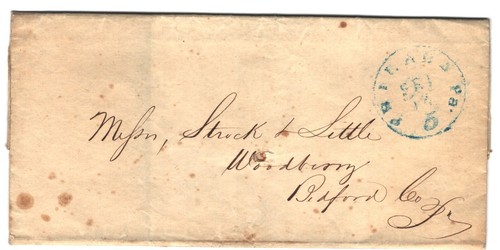 Messrs, Strock & Little
Woodberry
Bedford Co Pa
PHILADA Pa.
5